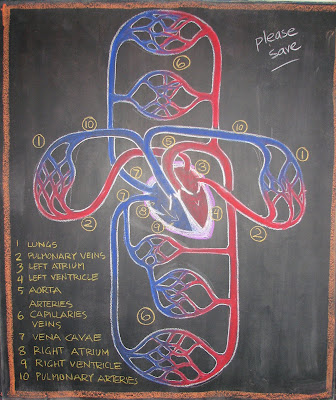 please
save
6
10
10
1
5
3
1
7
7
8
4
2
9
2
6
1 LUNGS
2 PULMONARY VEINS
3 LEFT ATRIUM
4 LEFT VENTRICLE
5 AORTA
ARTERIES
6 CAPILLARIES
VEINS
7 VENA CAVAE
8 RIGHT ATRIUM
9 RIGHT VENTRICLE
10 PULMONARY ARTERIES